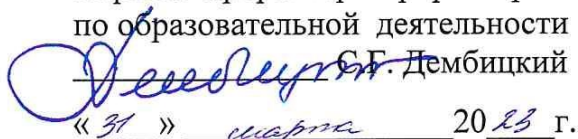 по образовательной деятельности
С.Г. Дембицкий
« 31 » марта 20 23 г.